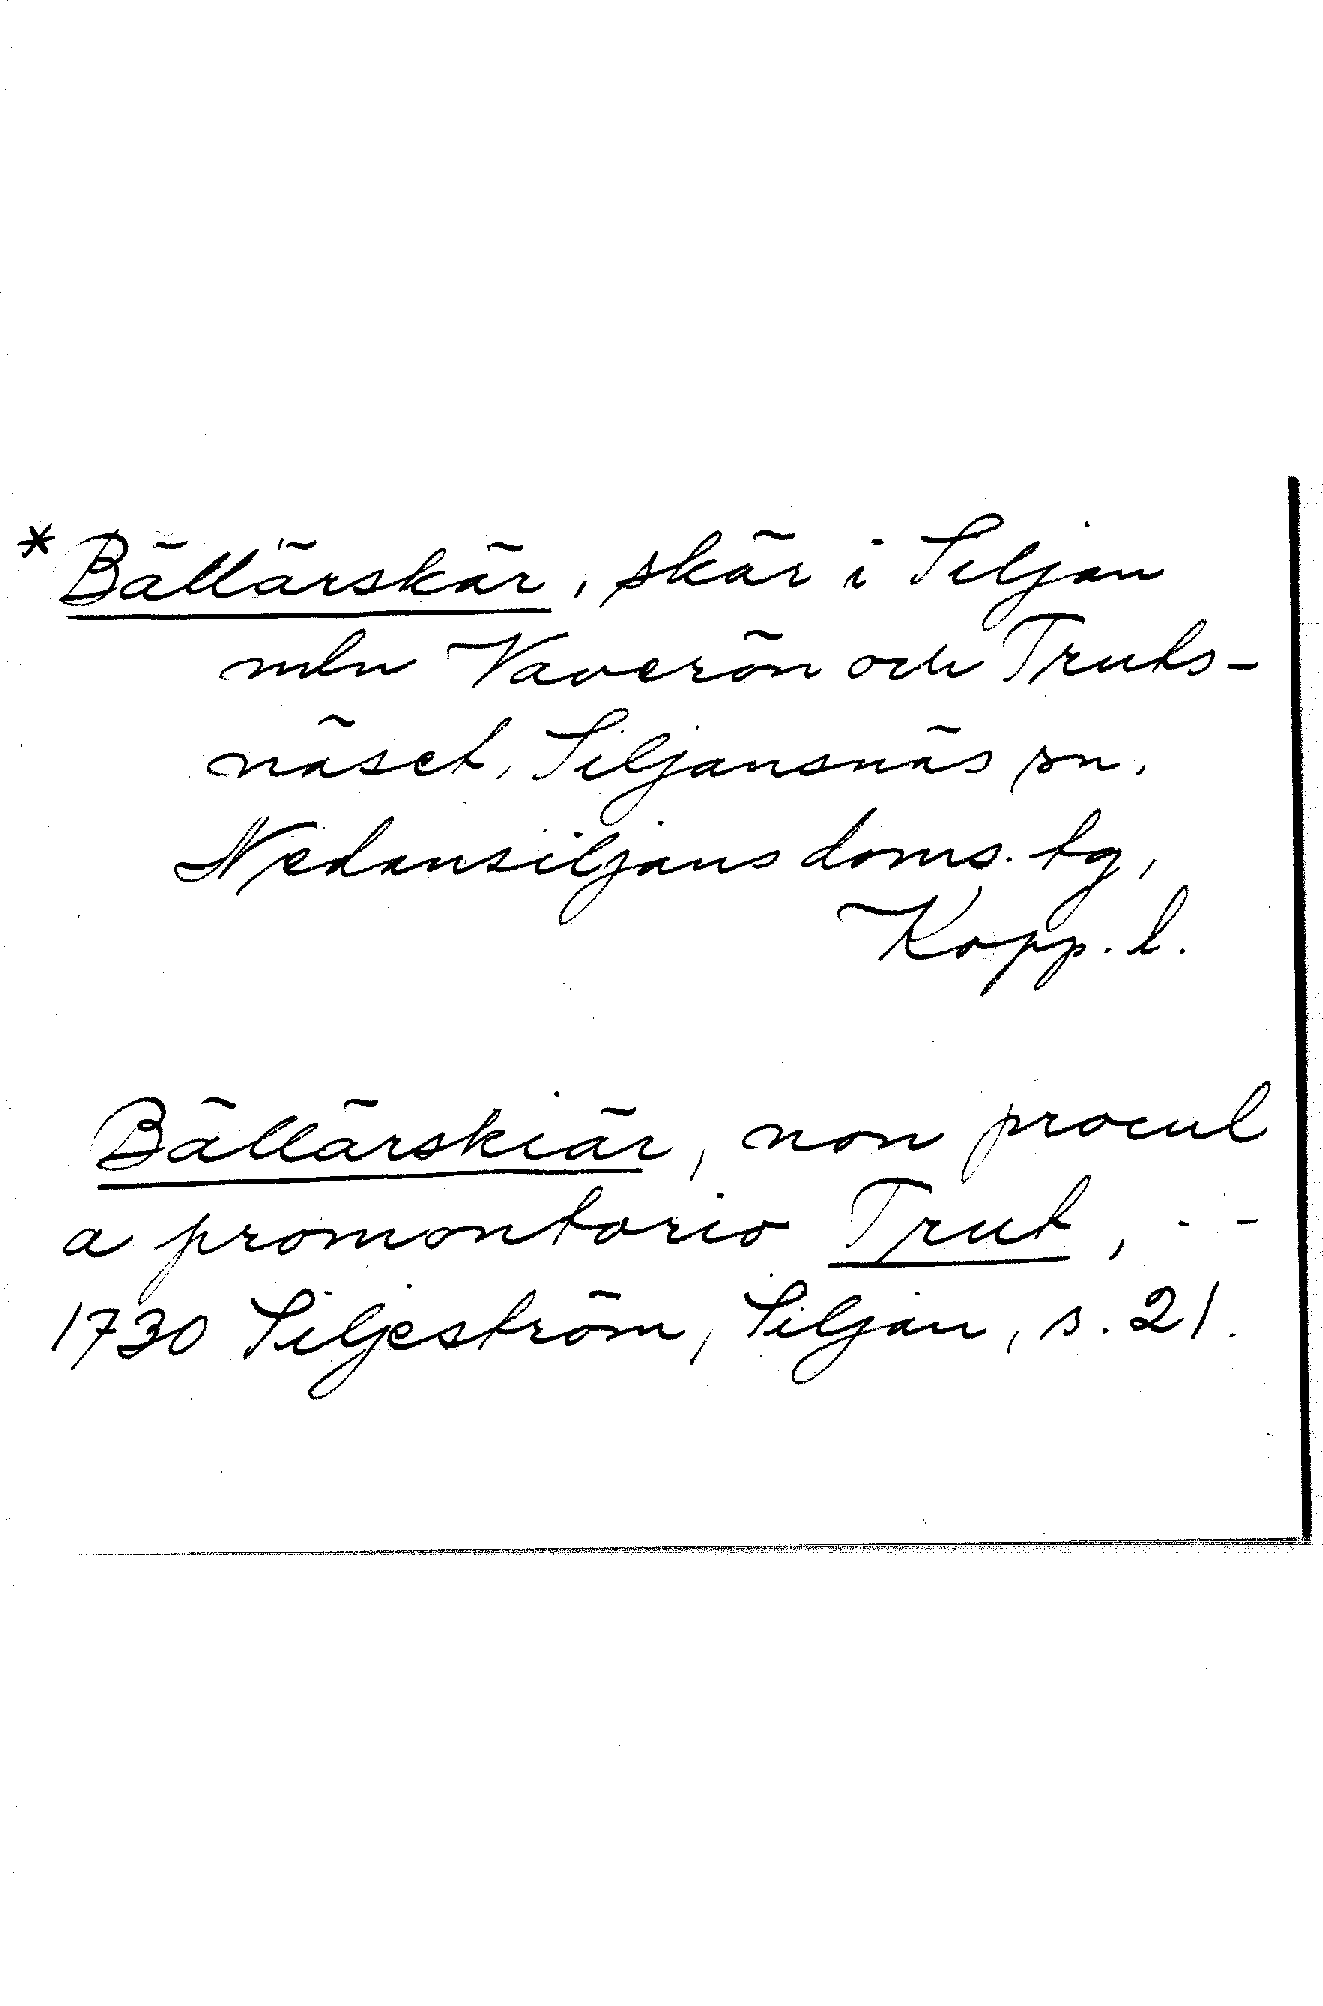 * Bällärskär, skär i Siljan
mln Vaverön och Truts-
näset, Siljansnäs sn,
Nedansiljans doms. tg,
Kopp. l.
Bällärskiär, non procul
a promontorio Trut, - -
1730 Siljeström, Siljan, s. 21.